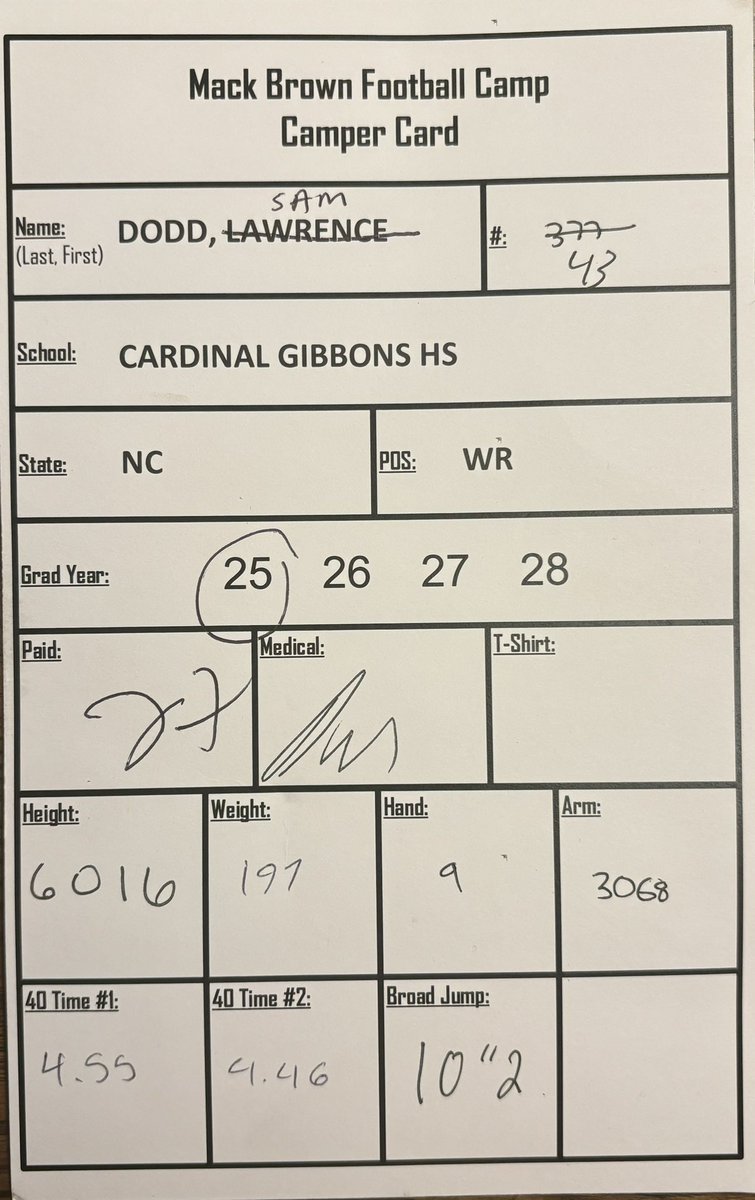 Mack Brown Football Camp
Camper Card
SAM
Name: DODD, LAWRENCE #: 377
(Last, First) 43
School: CARDINAL GIBBONS HS
State: NC POS: WR
Grad Year: 25 26 27 28
Paid: Medical: T-Shirt:
Height: Weight: Hand: Arm:
6016 197 9 3068
40 Time #1: 40 Time #2: Broad Jump:
4.55 4.46 10"2